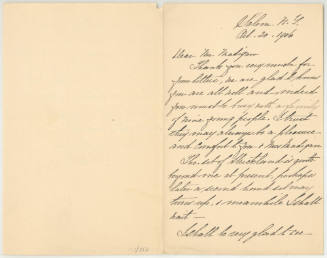 Salem N. Y.
Oct. 20. 1906
Dear Mr. Madigan
Thank you very much for
your letter, we are glad to know
you are all well and indeed
you must be busy with a family
of nine young people. I trust
they may always be a pleasure
and comfort to you & Mrs Madigan
The set of Strickland is quite
beyond me at present, perhaps
later a second hand set may
turn up, & meanwhile I shall
wait —
I shall be very glad to see